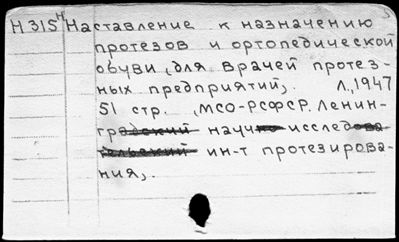 Н 315 Н Наставление к назначению
протезов и ортопедической
обуви, для врачей протез-
ных предприятий,. Л., 1947
51 стр. , МСО-РСФСР. Ленин-
градский научно исследова
тельский ин-т протезирова-
ния,.